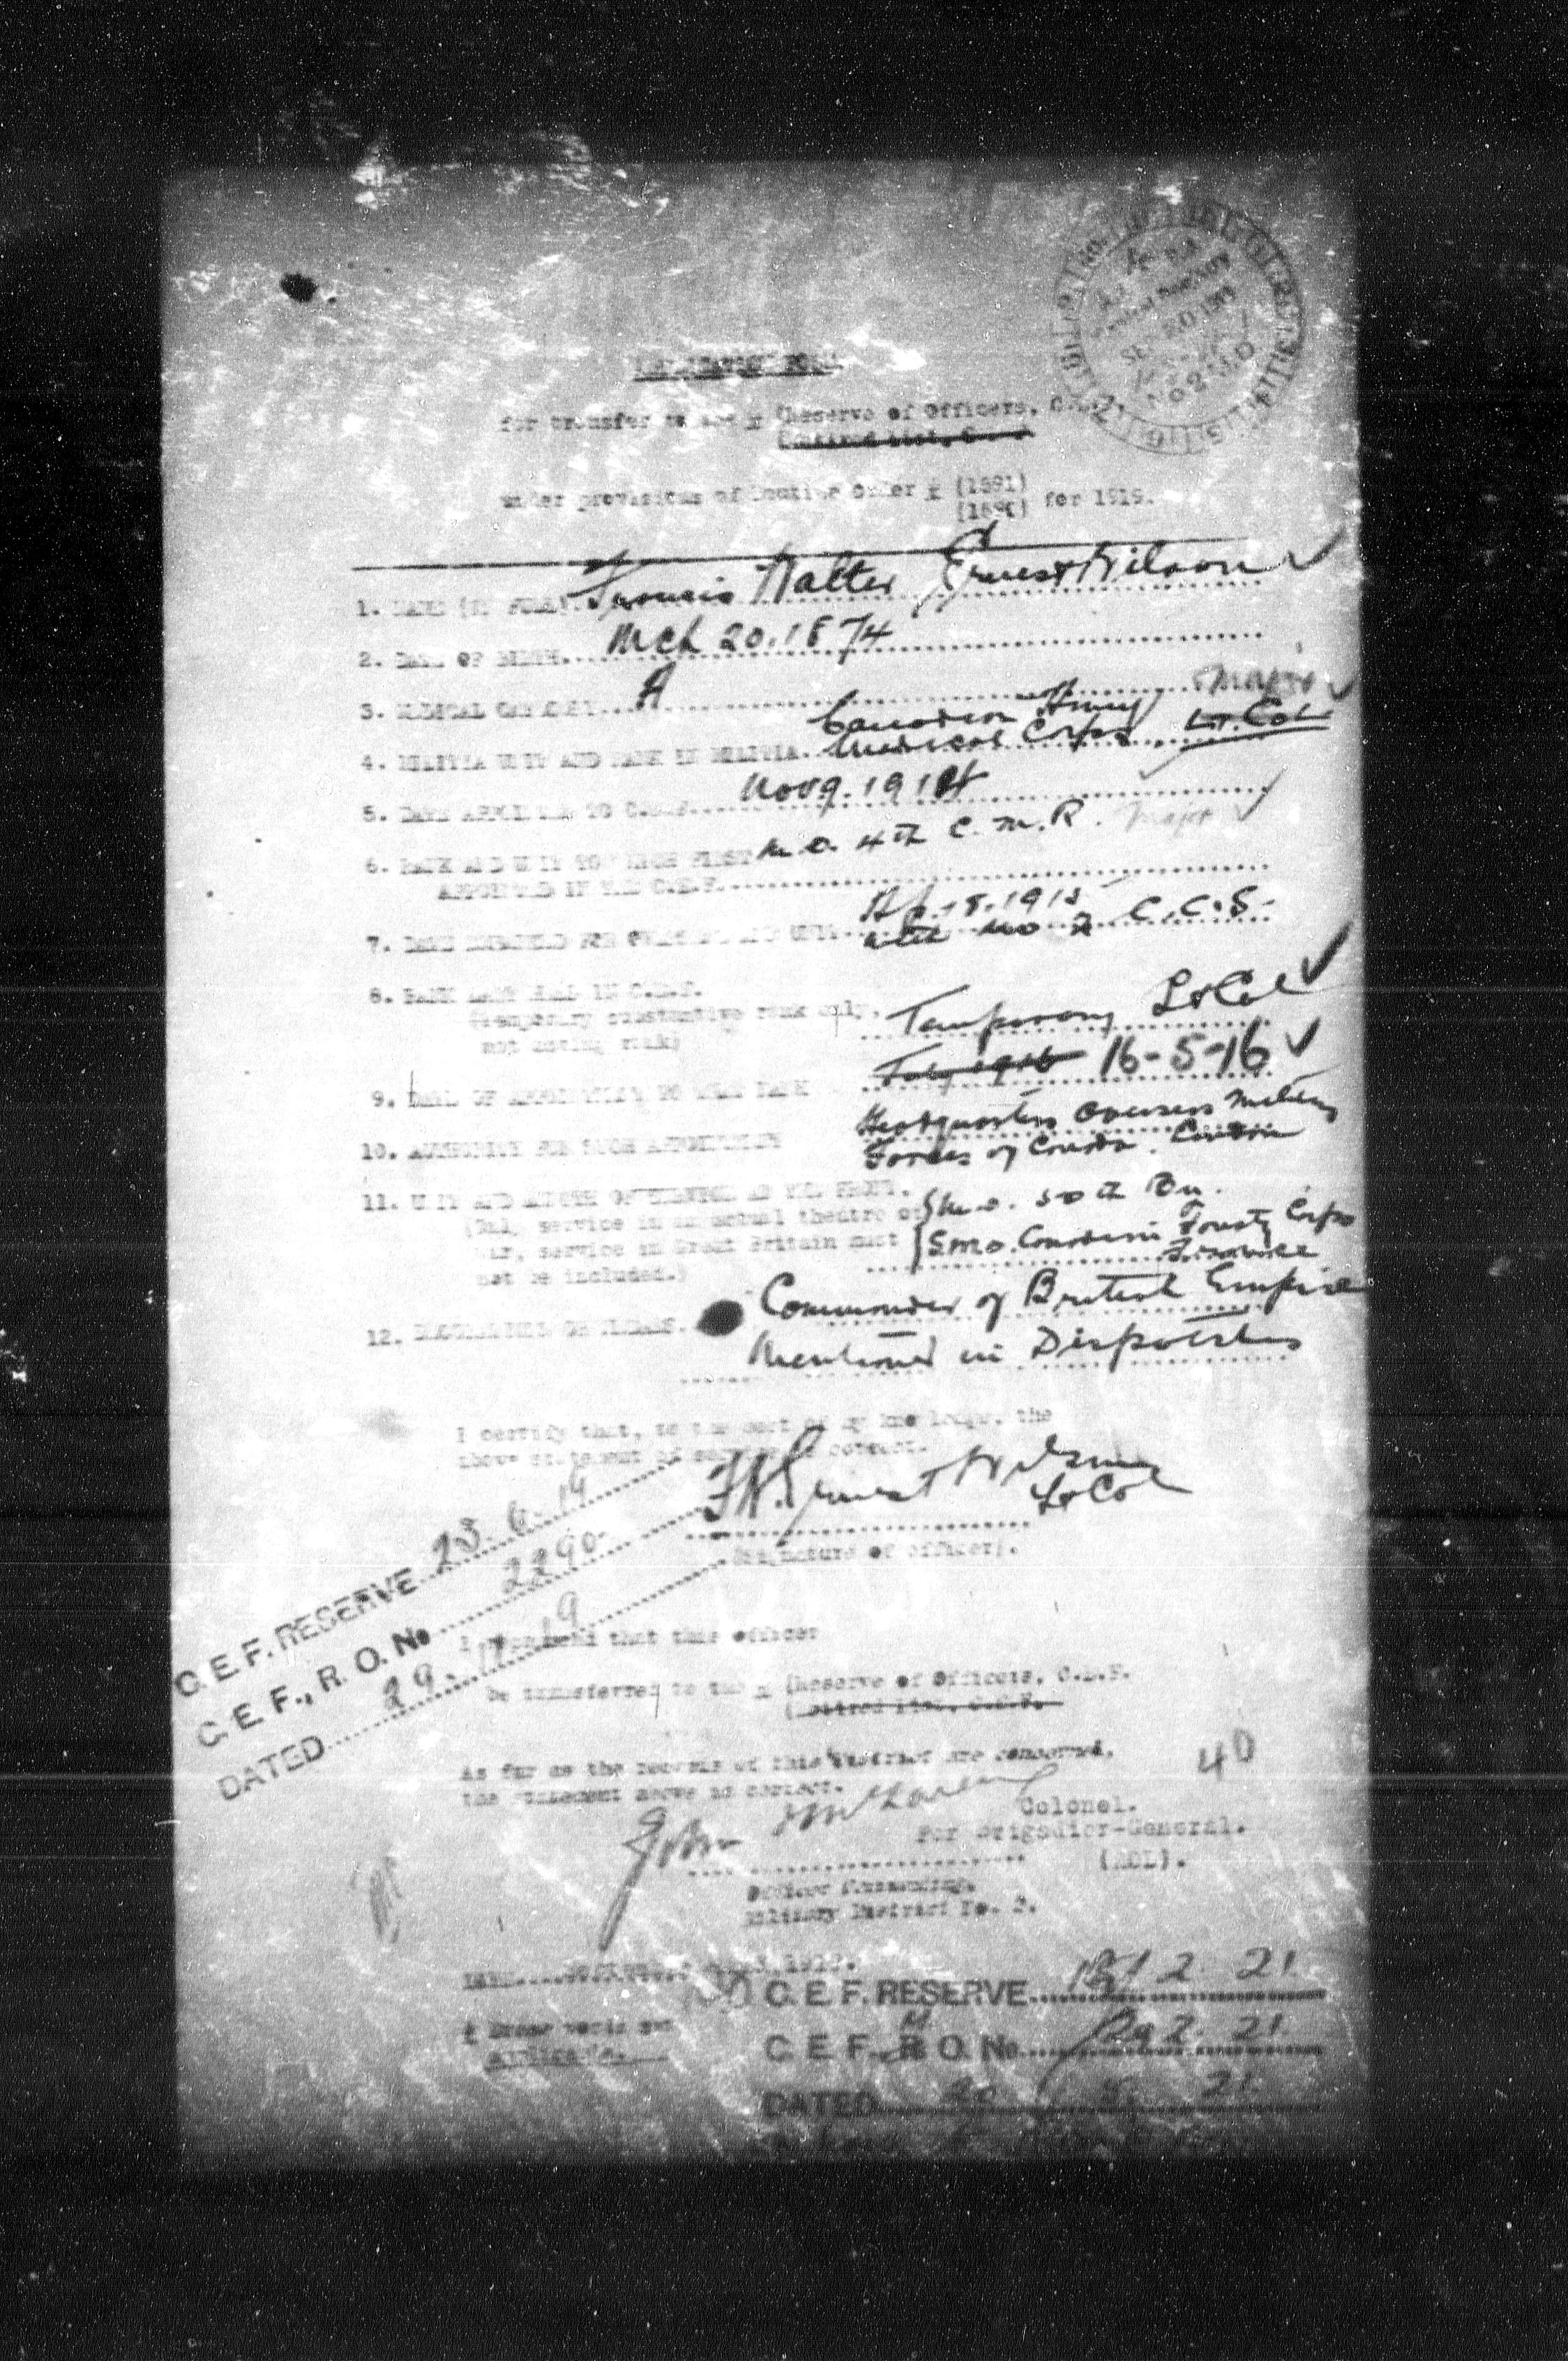 APPLICATION FORM
for transfer to the x (Reserve of Officers, C.E.F.
(Retired List, C.E.F.
under provisions of Routine Order x (1891)
(1890) for 1919.
1. NAME (IN FULL) Francis Walter Ernest Wilson
2. DATE OF BIRTH... Mch 20. 1874
3. MEDICAL CATEGORY... A
Major
4. MILITIA UNIT AND RANK IN MILITIA.. Canadian Army
Medical Corps Lt. Col
5. DATE APPOINTED TO C.E.F.... Nov 9. 1914
6. RANK AND UNIT TO WHICH FIRST M.O. 4th C.M.R. Major
APPOINTED IN THE C.E.F.
7. DATE
Ap. 1915
with No 2 C.C.S.
8. RANK LAST HELD IN C.E.F.
(temporary substantive rank only,
not acting rank) Temporary Lt Col
9. DATE OF APPOINTMENT TO THAT RANK 16-5-16
10. AUTHORITY FOR SUCH APPOINTMENT Headquarters Overseas Military
Forces of Canada. London
11. UNIT AND LENGTH OF SERVICE AT THE FRONT.
(Only service in an actual theatre of
war, service in Great Britain must
not be included.)
M.O. 50th Bn.
S.M.O. Canadian Forestry Corps
12. DECORATIONS OR MEDALS. Commander of British Empire
Mentioned in Dispatches
I certify that, to the best of my knowledge, the
above statement of service is correct.
F W. Ernest Wilson
Lt Col
(Signature of officer).
C. E. F. RESERVE 23. 6. 19
C. E. F., R. O. No 2290
DATED 29. 11. 19
I recommend that this officer
be transferred to the x (Reserve of Officers, C.E.F.
(Retired List, C.E.F.
As far as the records of this District are concerned,
the statement above is correct.
40
John
Colonel.
For Brigadier-General.
(AOL).
Officer Commanding,
Military District No. 2.
DATE 1919.
x Erase words not
applicable.
C. E. F. RESERVE 2. 21.
C. E. F. R. O. No 21.
DATED 21